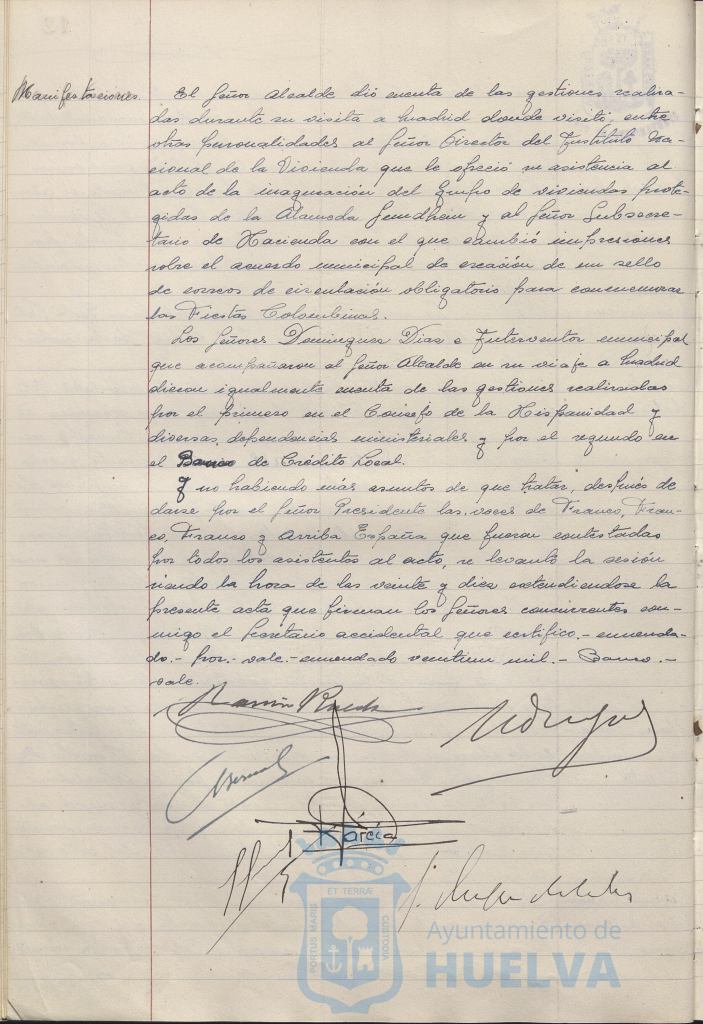 Manifestaciones.
El Señor Alcalde dió cuenta de las gestiones realiza-
das durante su visita a Madrid donde visitó, entre
otras personalidades al Señor Director del Instituto Na-
cional de la Vivienda que le ofreció su asistencia al
acto de la inaguración del Grupo de viviendas prote-
gidas de la Alameda Sundhein y al Señor Subsecre-
tario de Hacienda con el que cambió impresiones
sobre el acuerdo municipal de creación de un sello
de correos de circulación obligatorio para conmemorar
las Fiestas Colombinas.
Los Señores Dominguez Diaz e Interventor municipal
que acompañaron al Señor Alcalde en su viaje a Madrid
dieron igualmente cuenta de las gestiones realizadas
por el primero en el Consejo de la Hispanidad y
diversas dependencias ministeriales y por el segundo en
el Banco de Crédito Local.
Y no habiendo más asuntos de que tratar, después de
darse por el Señor Presidente las voces de Franco, Fran-
co, Franco y Arriba España que fueron contestadas
por todos los asistentes al acto, se levantó la sesión
siendo la hora de las veinte y diez extendiendose la
presente acta que firman los Señores concurrentes con-
migo el Secretario accidental que certifico.- enmenda-
do.- por.- vale.- enmendado veintiun mil.- Banco.-
vale.
García
ET TERRÆ
PORTUS MARIS
CUSTODIA
Ayuntamiento de
HUELVA